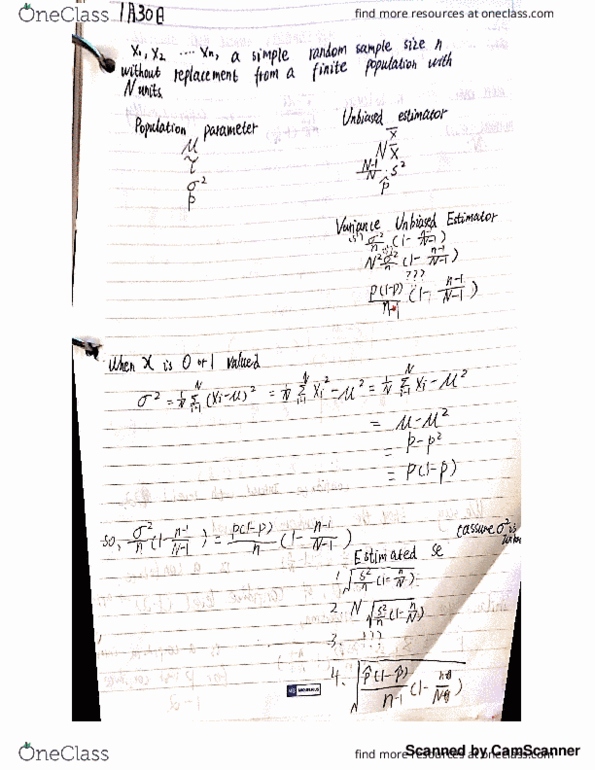 OneClass
find more resources at oneclass.com
1A30B
X₁, X₂ ... Xn, a simple random sample size n
without replacement from a finite population with
N units
Population parameter
μ
τ
σ²
p
Unbiased estimator
x̄
N x̄
N-1/N · s²
p̂
Variance Unbiased Estimator
σ²/n (1- n-1/N-1)
N² σ²/n (1- n-1/N-1)
???
p(1-p)/n-1 (1- n-1/N-1)
when X is 0 or 1 valued
σ² = 1/N Σ i=1 N (Xi-μ)² = 1/N Σ i=1 N Xi² - μ² = 1/N Σ i=1 N Xi - μ²
= μ - μ²
= p - p²
= p(1-p)
so, σ²/n (1- n-1/N-1) = p(1-p)/n (1- n-1/N-1)
(assume σ² is
Estimated se
1. √ s²/n (1- n/N)
2. N √ s²/n (1- n/N)
3. ???
4. √ p̂(1-p̂)/n-1 (1-
OneClass
find more resources at oneclass.com
Scanned by CamScanner